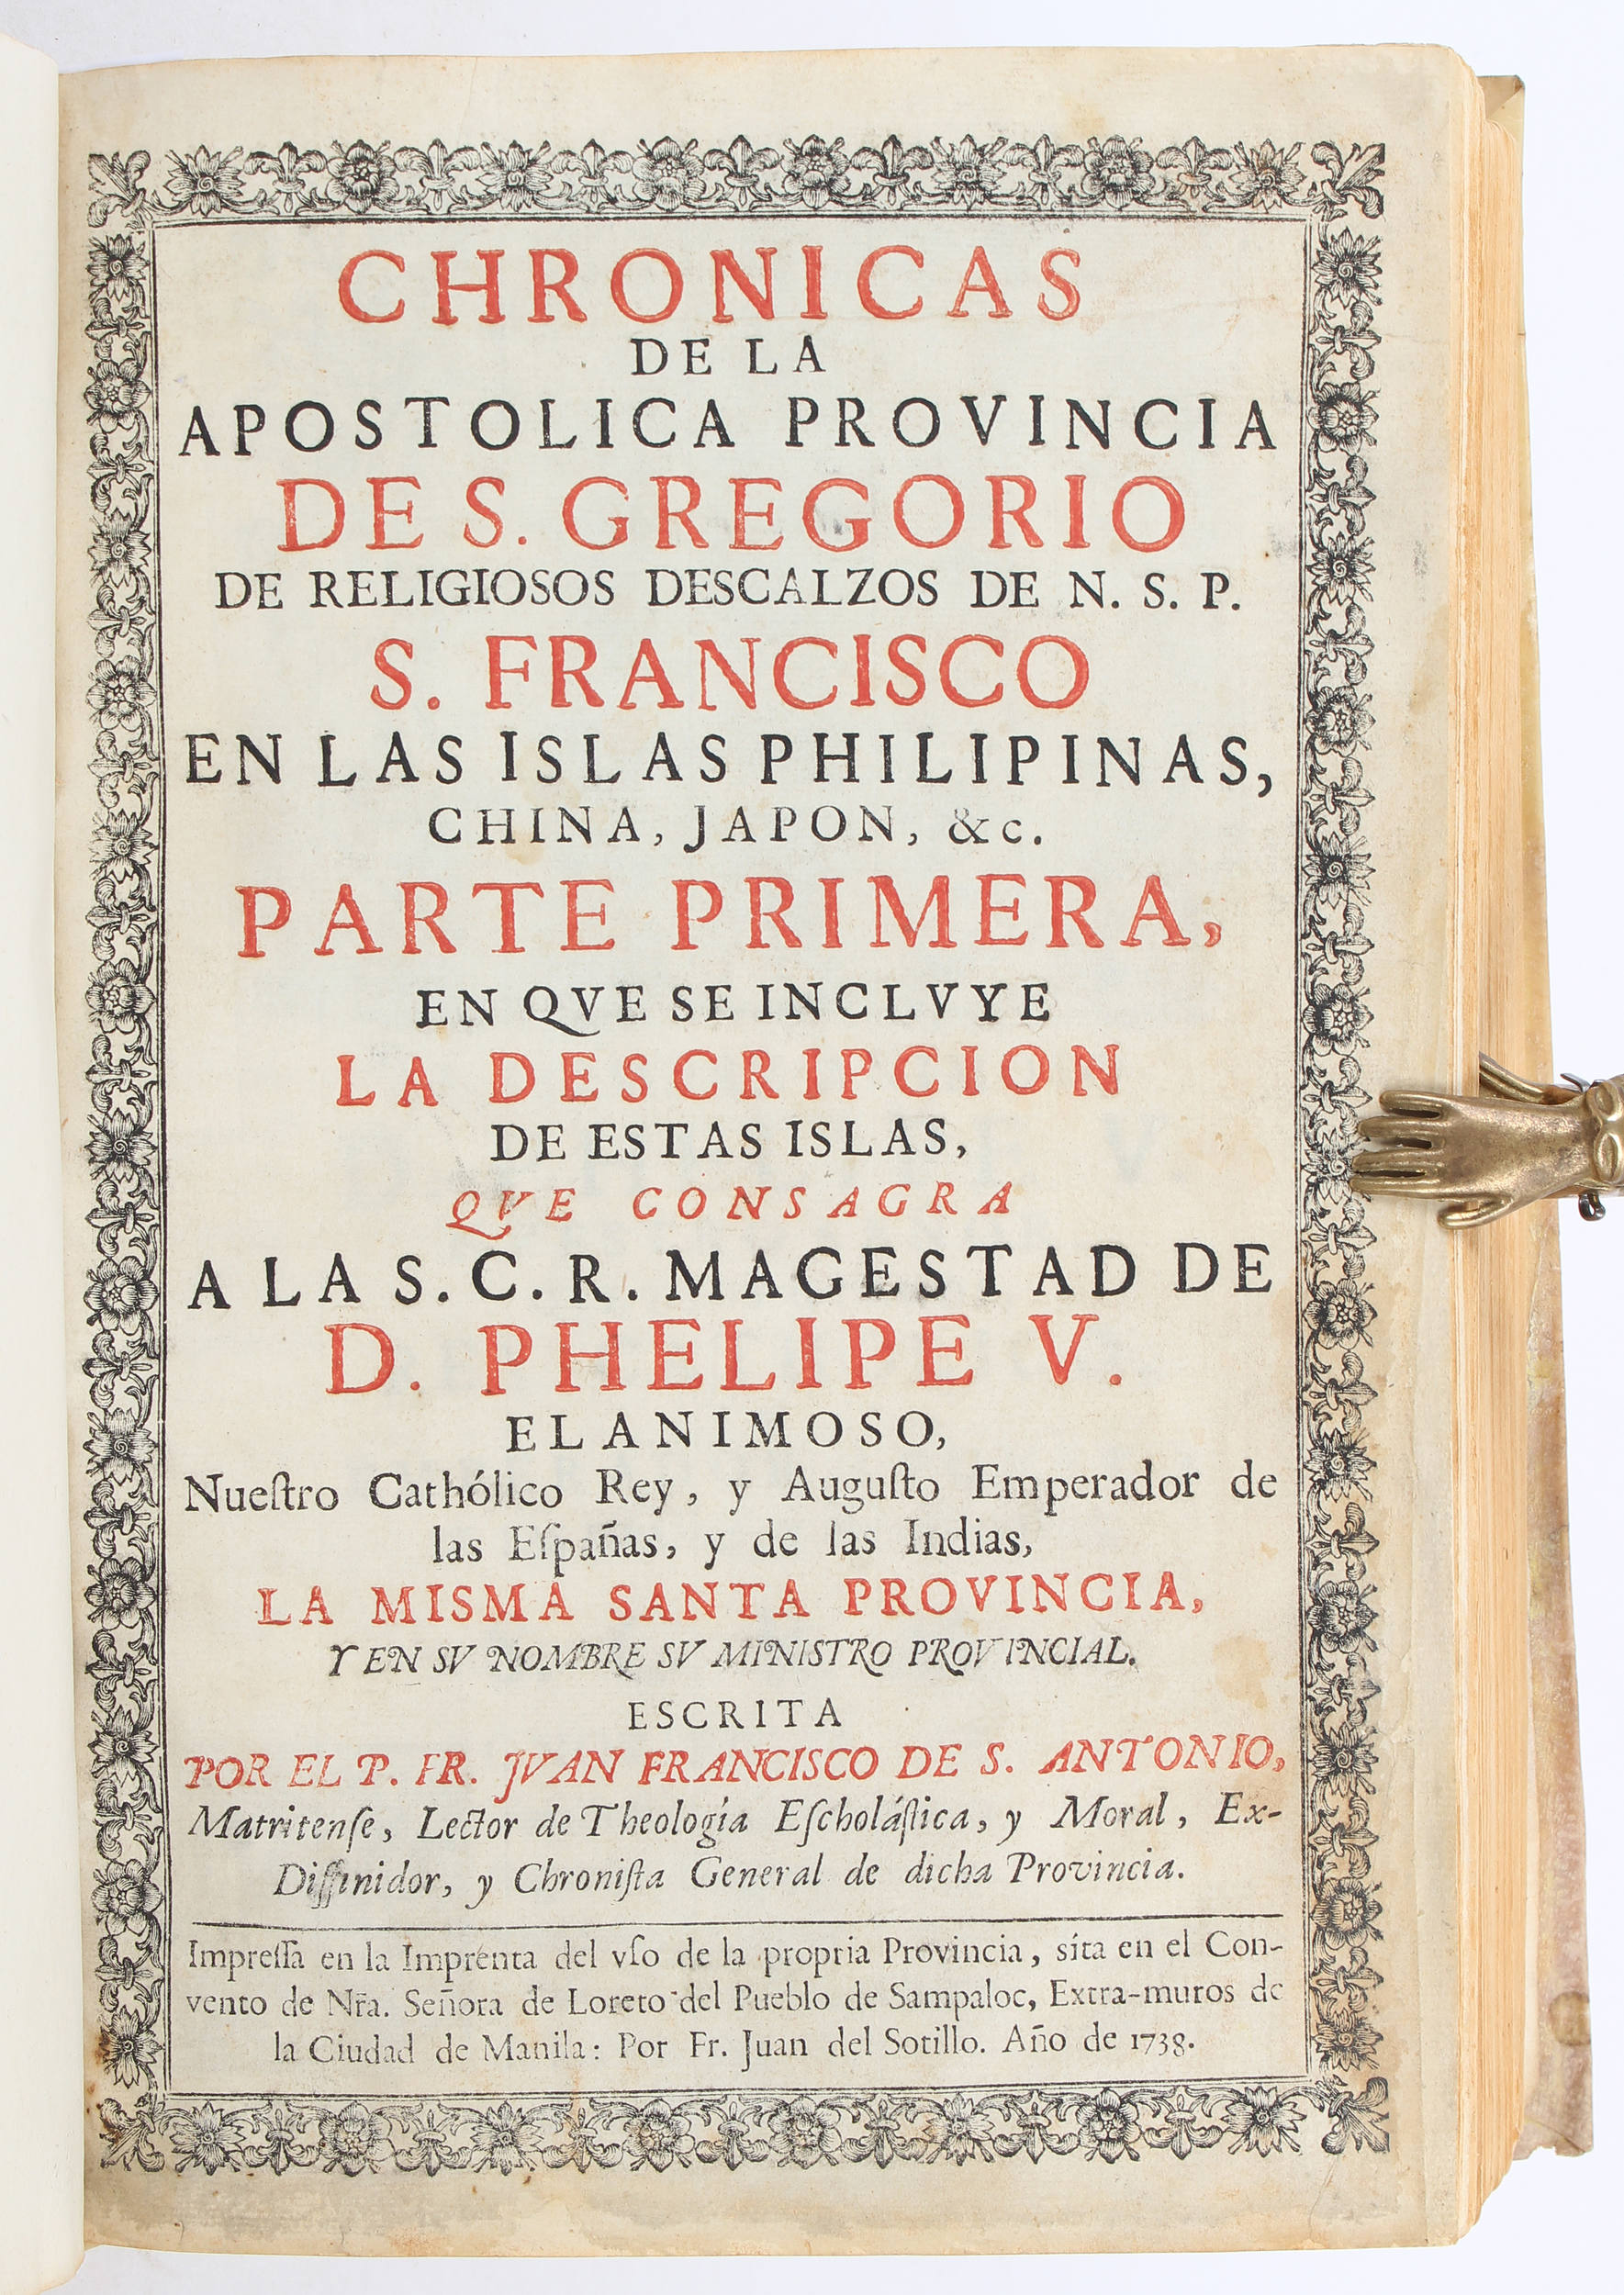 CHRONICAS
DE LA
APOSTOLICA PROVINCIA
DE S. GREGORIO
DE RELIGIOSOS DESCALZOS DE N. S. P.
S. FRANCISCO
EN LAS ISLAS PHILIPINAS,
CHINA, JAPON, &c.
PARTE PRIMERA,
EN QVE SE INCLVYE
LA DESCRIPCION
DE ESTAS ISLAS,
QVE CONSAGRA
A LA S. C. R. MAGESTAD DE
D. PHELIPE V.
EL ANIMOSO,
Nueſtro Cathólico Rey, y Auguſto Emperador de
las Eſpañas, y de las Indias,
LA MISMA SANTA PROVINCIA,
Y EN SV NOMBRE SV MINISTRO PROVINCIAL.
ESCRITA
POR EL P. FR. JVAN FRANCISCO DE S. ANTONIO,
Matritenſe, Lector de Theología Eſcholáſtica, y Moral, Ex-
Diffinidor, y Chroniſta General de dicha Provincia.
Impreſſa en la Imprenta del vſo de la propria Provincia, síta en el Con-
vento de Nr̃a. Señora de Loreto del Pueblo de Sampaloc, Extra-muros de
la Ciudad de Manila: Por Fr. Juan del Sotillo. Año de 1738.